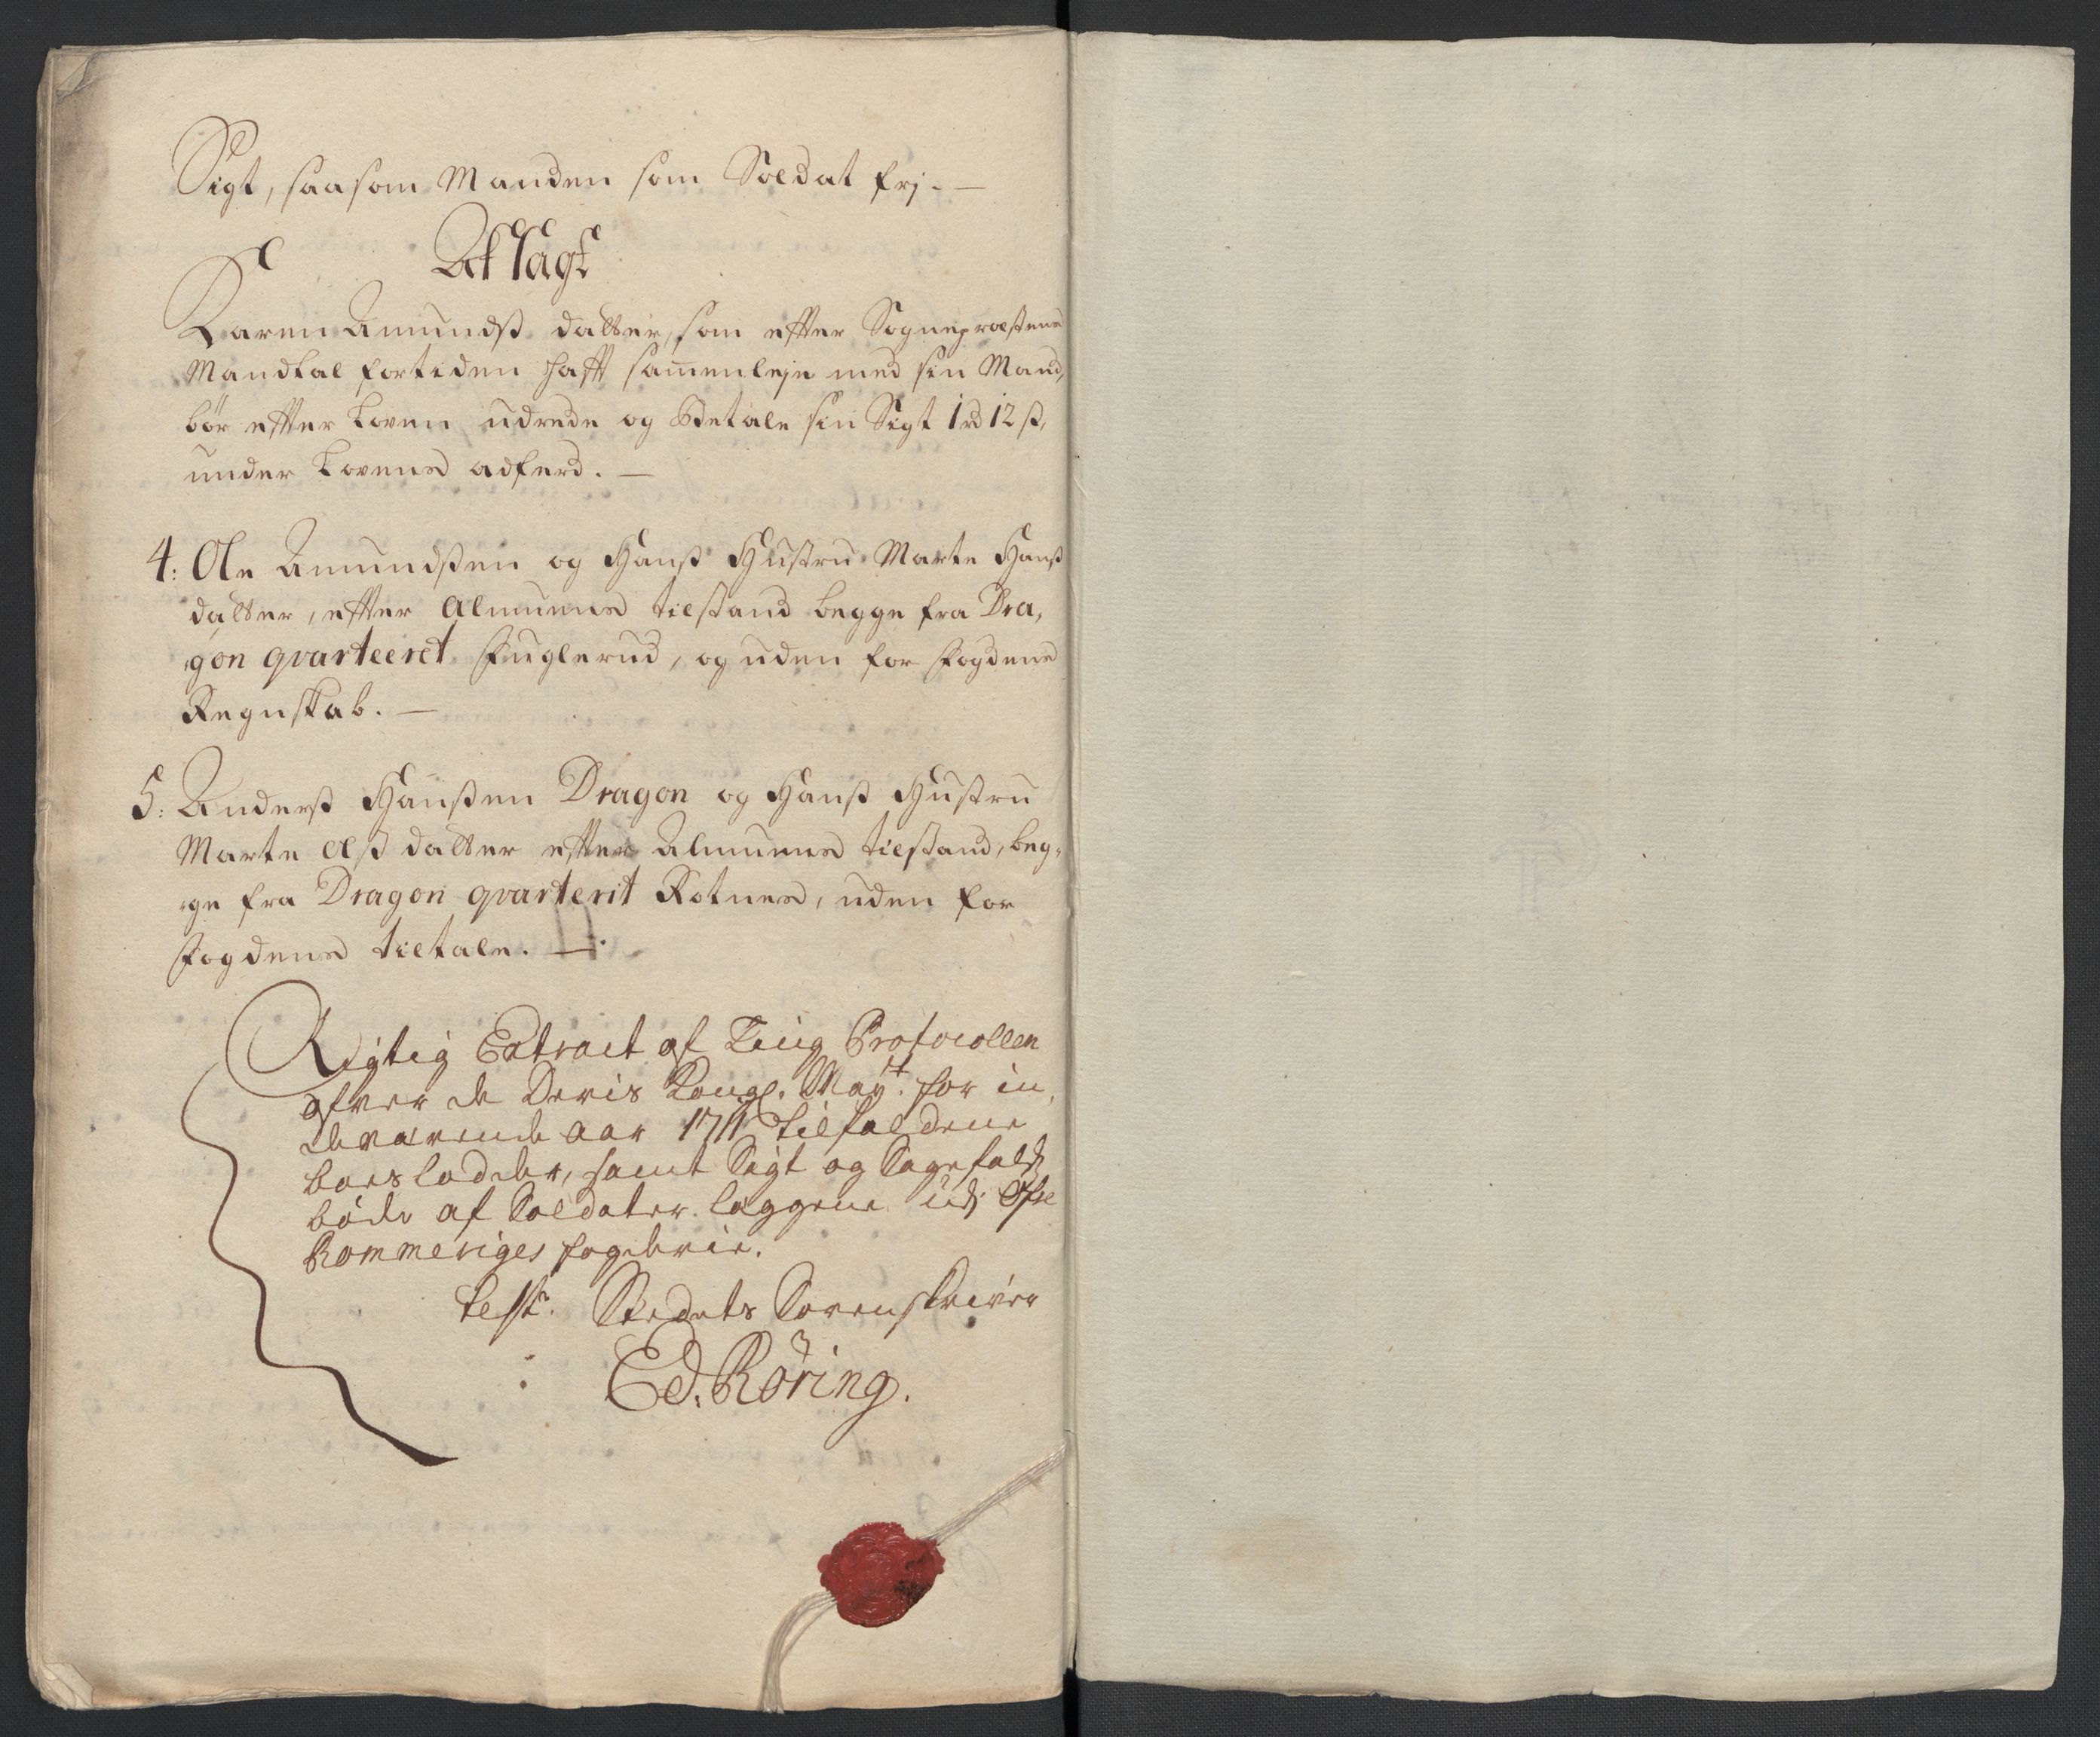 Sigt, saasom Manden som Soldat frj. —
Afsagt
Karen Amundsß datter, som efter Sognepræstens
Mandtal fortiden hafft sammenleje med sin Mand,
bør efter Loven udrede og Betale sin Sigt 1 rd 12 ß,
under Lovens adferd. —
4: Ole Amundßen og Hanß Hustru Marte Hanß
datter, efter Almuens tilstand begge fra Dra,
gon qvarteeret Fuglerud, og uden for Fogdens
Regnskab. —
5: Anderß Hanßen Dragon og Hanß Hustru
Marte Olß datter efter Almuens tilstand, beg,
ge fra Dragon qvarterit Rotnes, uden for
Fogdens tiltale. —
Rigtig Extract af Ting Protocollen
ofver de Deris Kongl. Mayt. for in,
deværende aar 1711 tilfaldene
boeslodder, samt Sigt og Sagefalds
bøde af Soldater læggene udj Øfre
Rommeriges fogderie.
Test. Stedets Sorenskriver
Ed. Röring.